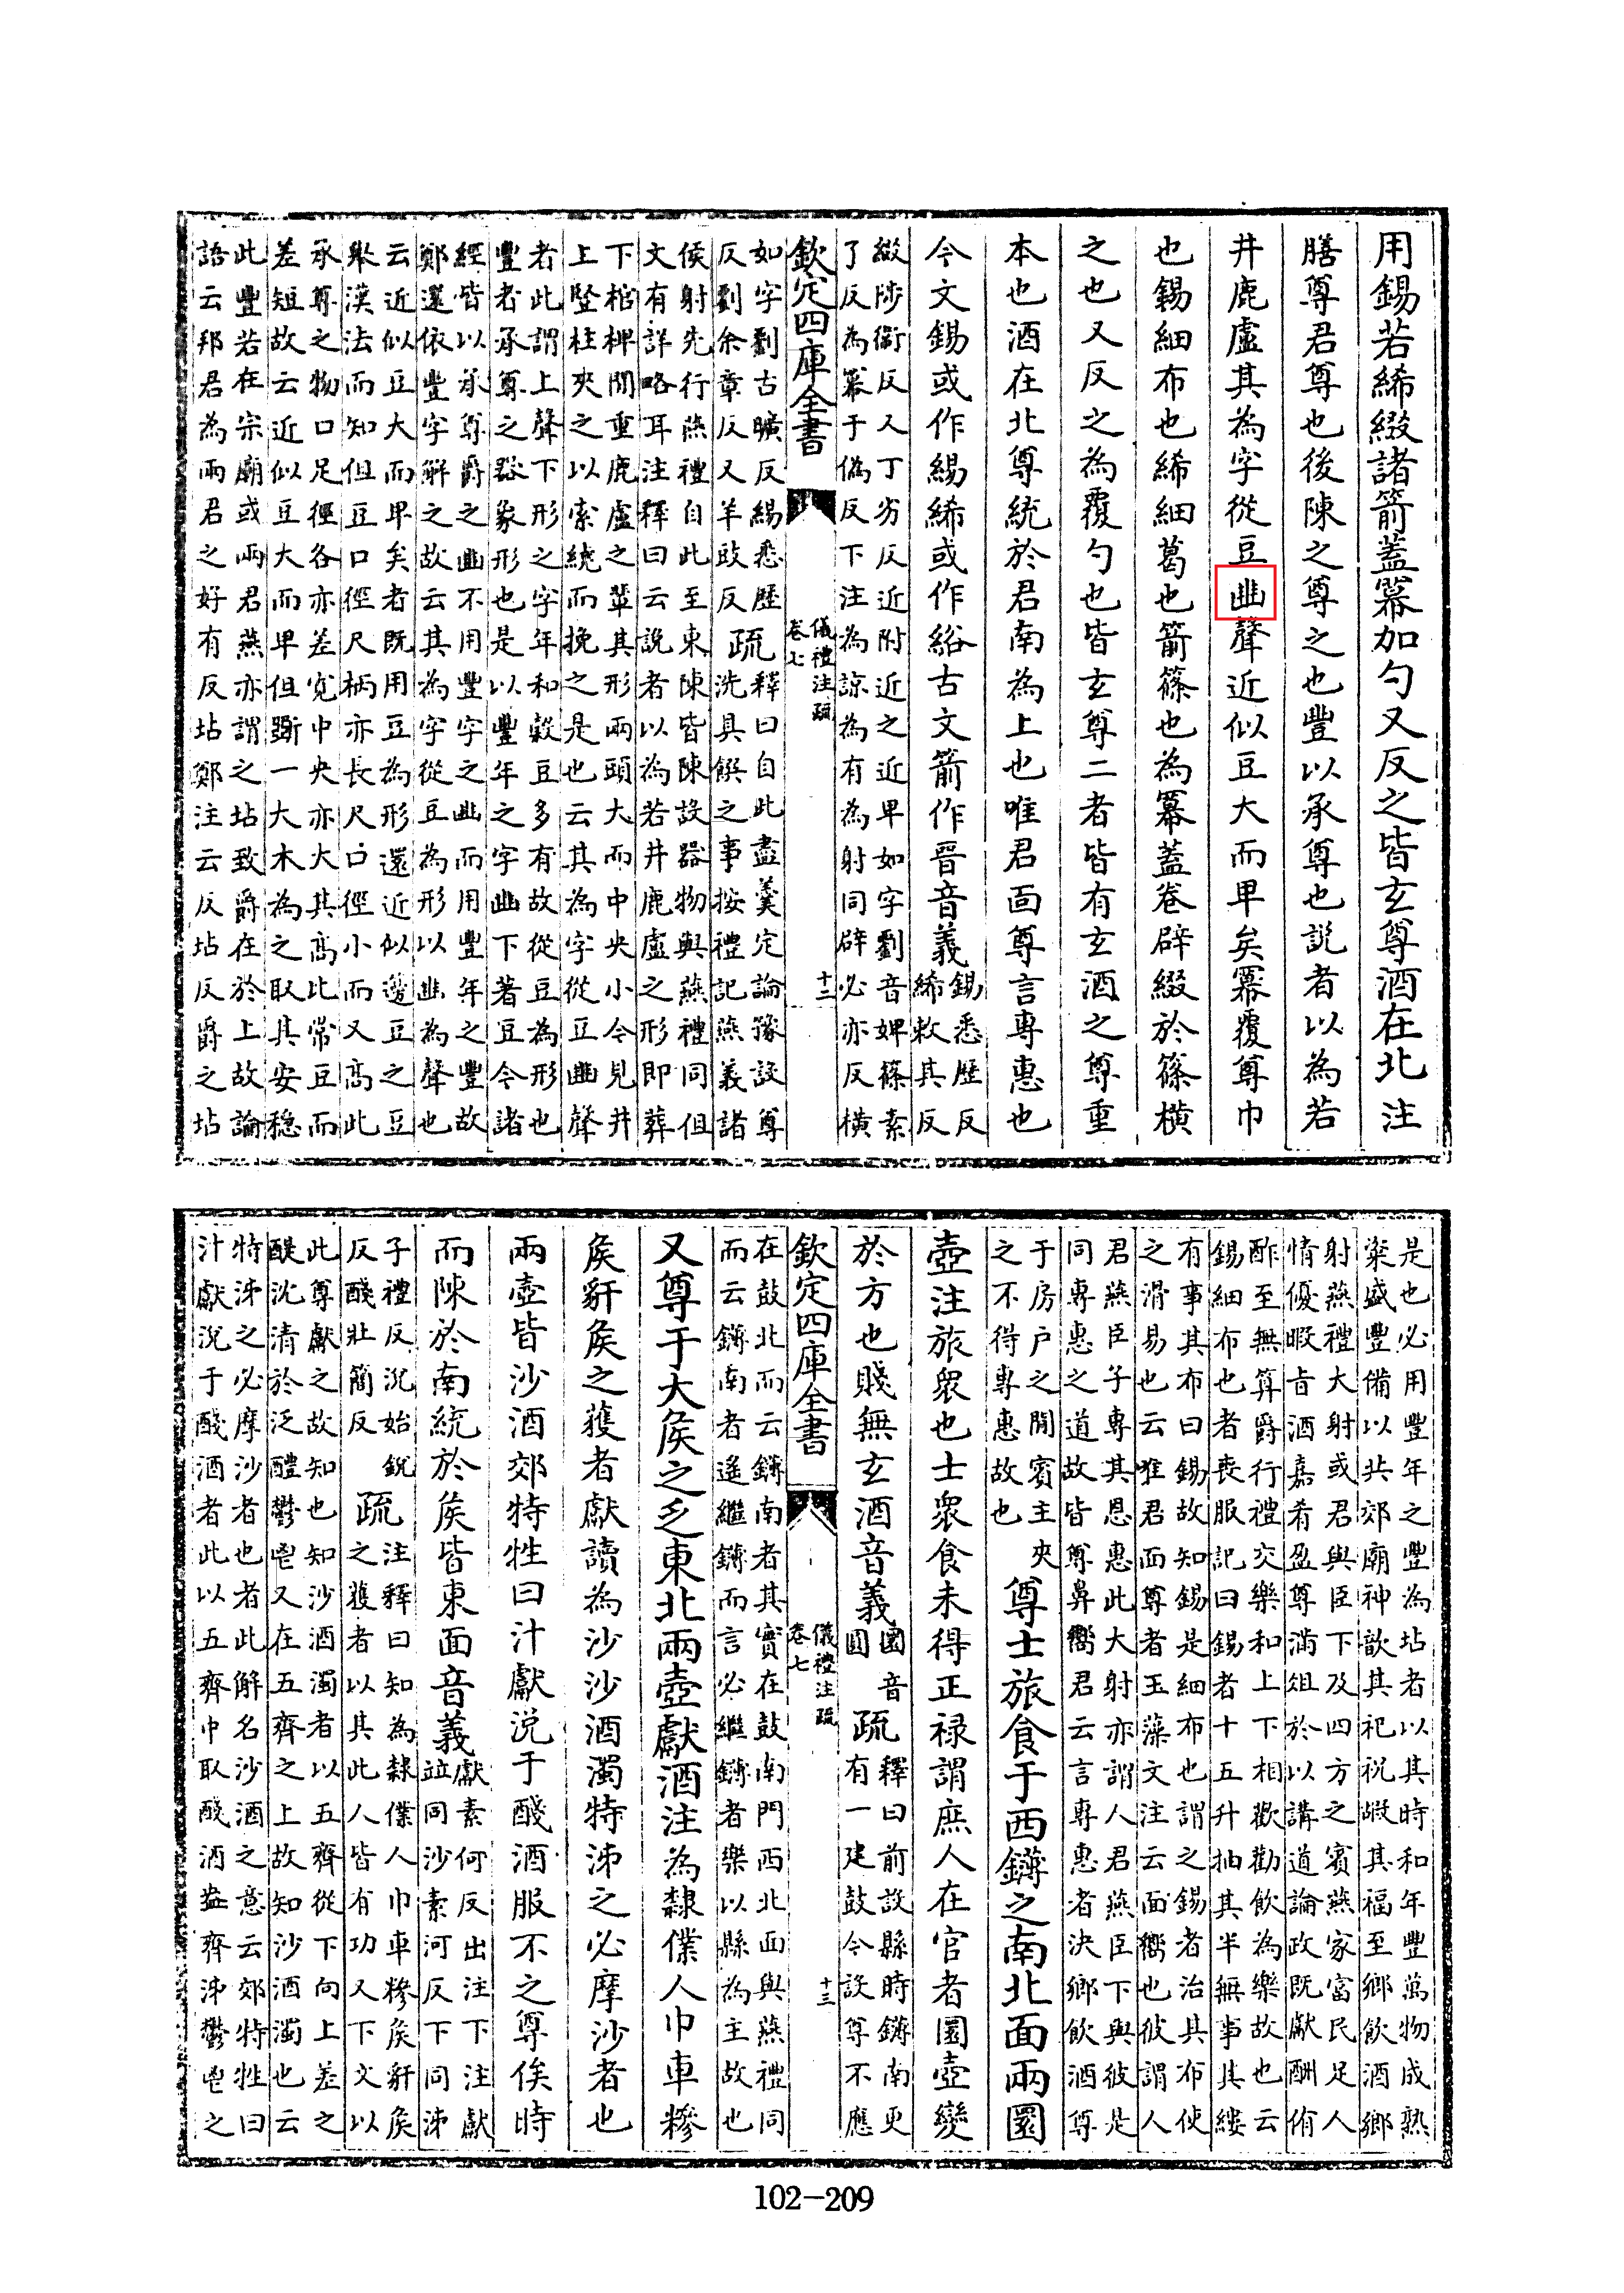 用錫若絺綴諸箭蓋冪加勺又反之皆玄尊酒在北注
膳尊君尊也後陳之尊之也豐以承尊也説者以為若
井鹿盧其為字從豆𠁳聲近似豆大而卑矣冪覆尊巾
也錫細布也絺細葛也箭篠也為冪蓋卷辟綴於篠橫
之也又反之為覆勺也皆玄尊二者皆有玄酒之尊重
本也酒在北尊統於君南為上也唯君面尊言専惠也
今文錫或作緆絺或作綌古文箭作晉音義錫悉歴反
絺敕其反
綴陟衞反又丁劣反近附近之近卑如字劉音婢篠素
了反為冪于偽反下注為諒為有為射同辟必亦反橫
欽定四庫全書 儀禮注疏 卷七 十二
如字劉古曠反緆悉歴
反劉余章反又羊豉反
疏
釋曰自此盡羹定論豫設尊
洗具饌之事按禮記燕義諸
侯射先行燕禮自此至東陳皆陳設器物與燕禮同但
文有詳略耳注釋曰云説者以為若井鹿盧之形即葬
下棺椑間重鹿盧之輩其形兩頭大而中央小今見井
上豎柱夾之以索繞而挽之是也云其為字從豆𠁳聲
者此謂上聲下形之字年和穀豆多有故從豆為形也
豐者承尊之器象形也是以豐年之字𠁳下著豆今諸
經皆以承尊爵之𠁳不用豐字之𠁳而用豐年之豐故
鄭還依豐字解之故云其為字從豆為形以𠁳為聲也
云近似豆大而卑矣者既用豆為形還近似籩豆之豆
舉漢法而知但豆口徑尺柄亦長尺口徑小而又高此
承尊之物口足徑各亦差寛中央亦大其高比常豆而
差短故云近似豆大而卑但斵一大木為之取其安穩
此豐若在宗廟或兩君燕亦謂之坫致爵在於上故論
語云邦君為兩君之好有反坫鄭注云反坫反爵之坫
是也必用豐年之豐為坫者以其時和年豐萬物成熟
粢盛豐備以共郊廟神歆其祀祝嘏其福至鄉飲酒鄉
射燕禮大射或君與臣下及四方之賓燕家富民足人
情優暇旨酒嘉肴盈尊滿俎於以講道論政既獻酬侑
酢至無算爵行禮交樂和上下相歡勸飲為樂故也云
錫細布也者喪服記曰錫者十五升抽其半無事其縷
有事其布曰錫故知錫是細布也謂之錫者治其布使
之滑易也云唯君面尊者玉藻文注云面嚮也彼謂人
君燕臣子專其恩惠此大射亦謂人君燕臣下與彼是
同專惠之道故皆尊鼻嚮君云言專惠者決鄉飲酒尊
于房户之間賓主夾
之不得專惠故也
尊士旅食于西鑮之南北面兩圜
壺注旅衆也士衆食未得正禄謂庶人在官者圜壺變
於方也賤無玄酒音義圜音
圓
疏
釋曰前設縣時鑮南更
有一建鼓今設尊不應
欽定四庫全書 儀禮注疏 卷七 十三
在鼓北而云鑮南者其實在鼓南門西北面與燕禮同
而云鑮南者遙繼鑮而言必繼鑮者樂以縣為主故也
又尊于大矦之乏東北兩壺獻酒注為隸僕人巾車糝
矦豻矦之獲者獻讀為沙沙酒濁特泲之必摩沙者也
兩壺皆沙酒郊特牲曰汁獻涗于醆酒服不之尊俟時
而陳於南統於矦皆東面音義獻素何反出注下注獻
竝同沙素河反下同泲
子禮反涗始鋭
反醆壯簡反
疏
注釋曰知為隸僕人巾車糝矦豻矦
之獲者以其此人皆有功又下文以
此尊獻之故知也知沙酒濁者以五齊從下向上差之
醍沈清於泛醴鬱鬯又在五齊之上故知沙酒濁也云
特泲之必摩沙者也者此解名沙酒之意云郊特牲曰
汁獻涗于醆酒者此以五齊中取醆酒盎齊泲鬱鬯之
102-209